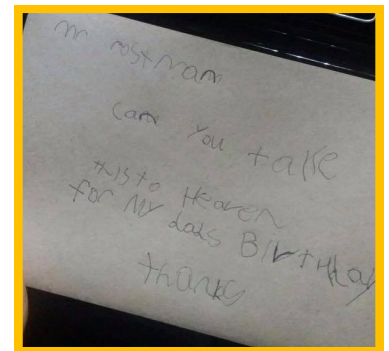 mr Postman
can You take
this to Heaven
for My dads BirtHday
thanks